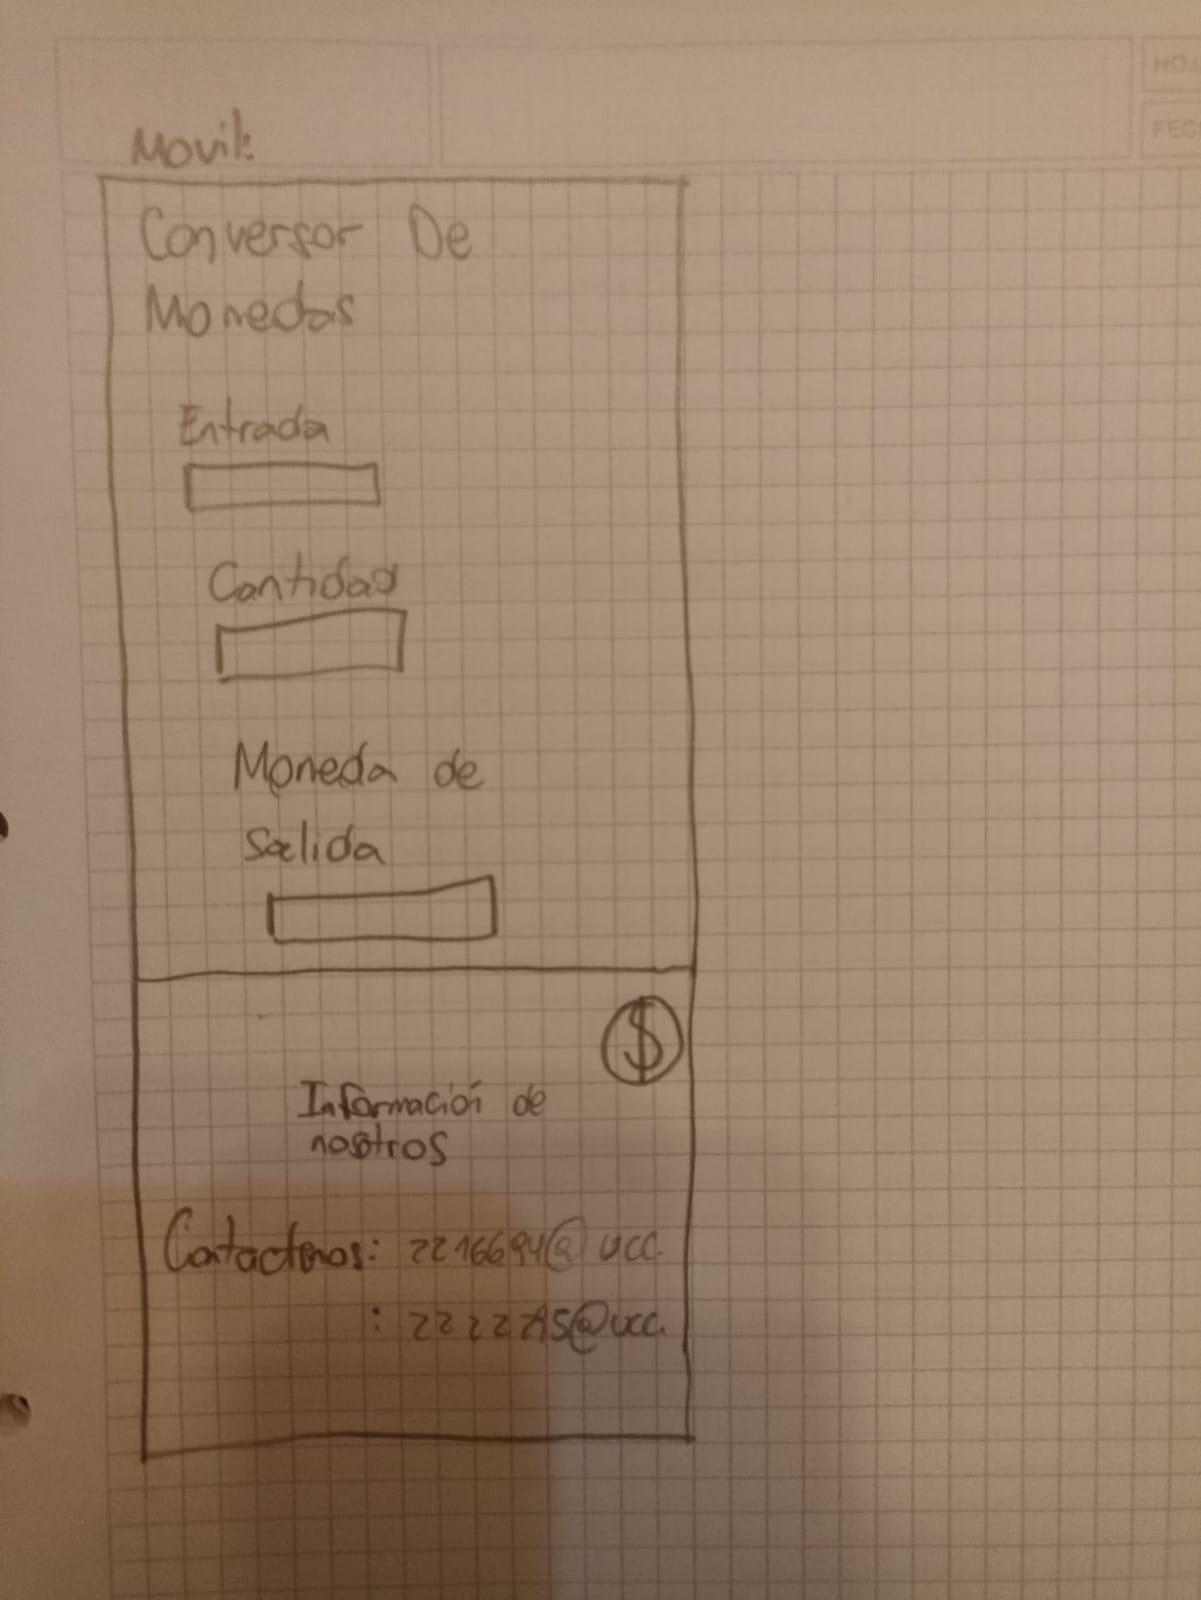 HOJ
FEC
Movil:
Conversor De
Monedas
Entrada
Cantidad
Moneda de
Salida
$
Información de
nosotros
Contactenos: 2216694@ucc.
: @ucc.